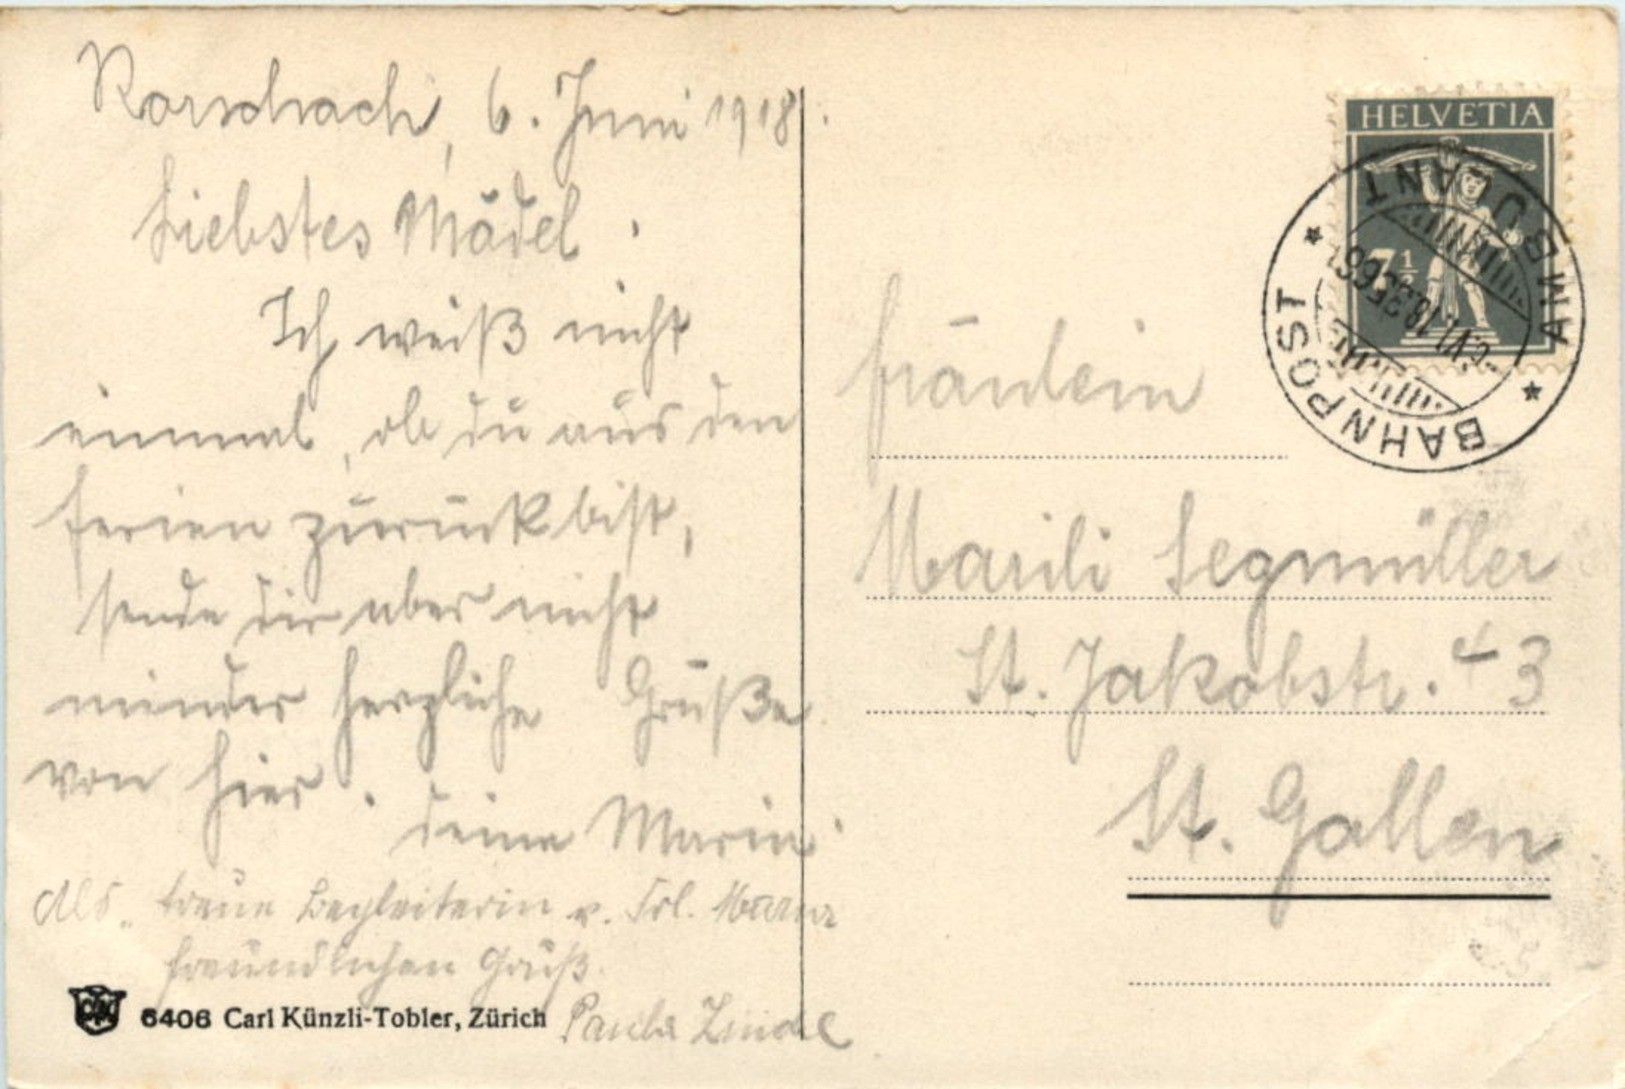 Rorschach, 6. Juni 1918.
Liebstes Mädel.
Ich weiß nicht
einmal, ob du aus den
Ferien zurück bist,
sende dir aber nicht
minder herzliche Grüße
von hier.
deine Marie.
Als treue Begleiterin v. Frl.
freundlichen Gruß.
Paula
6406 Carl Künzli-Tobler, Zürich
HELVETIA
7½
AMBULANT
BAHNPOST
Fräulein
Marili Segmüller
St. Jakobstr. 43
St. Gallen